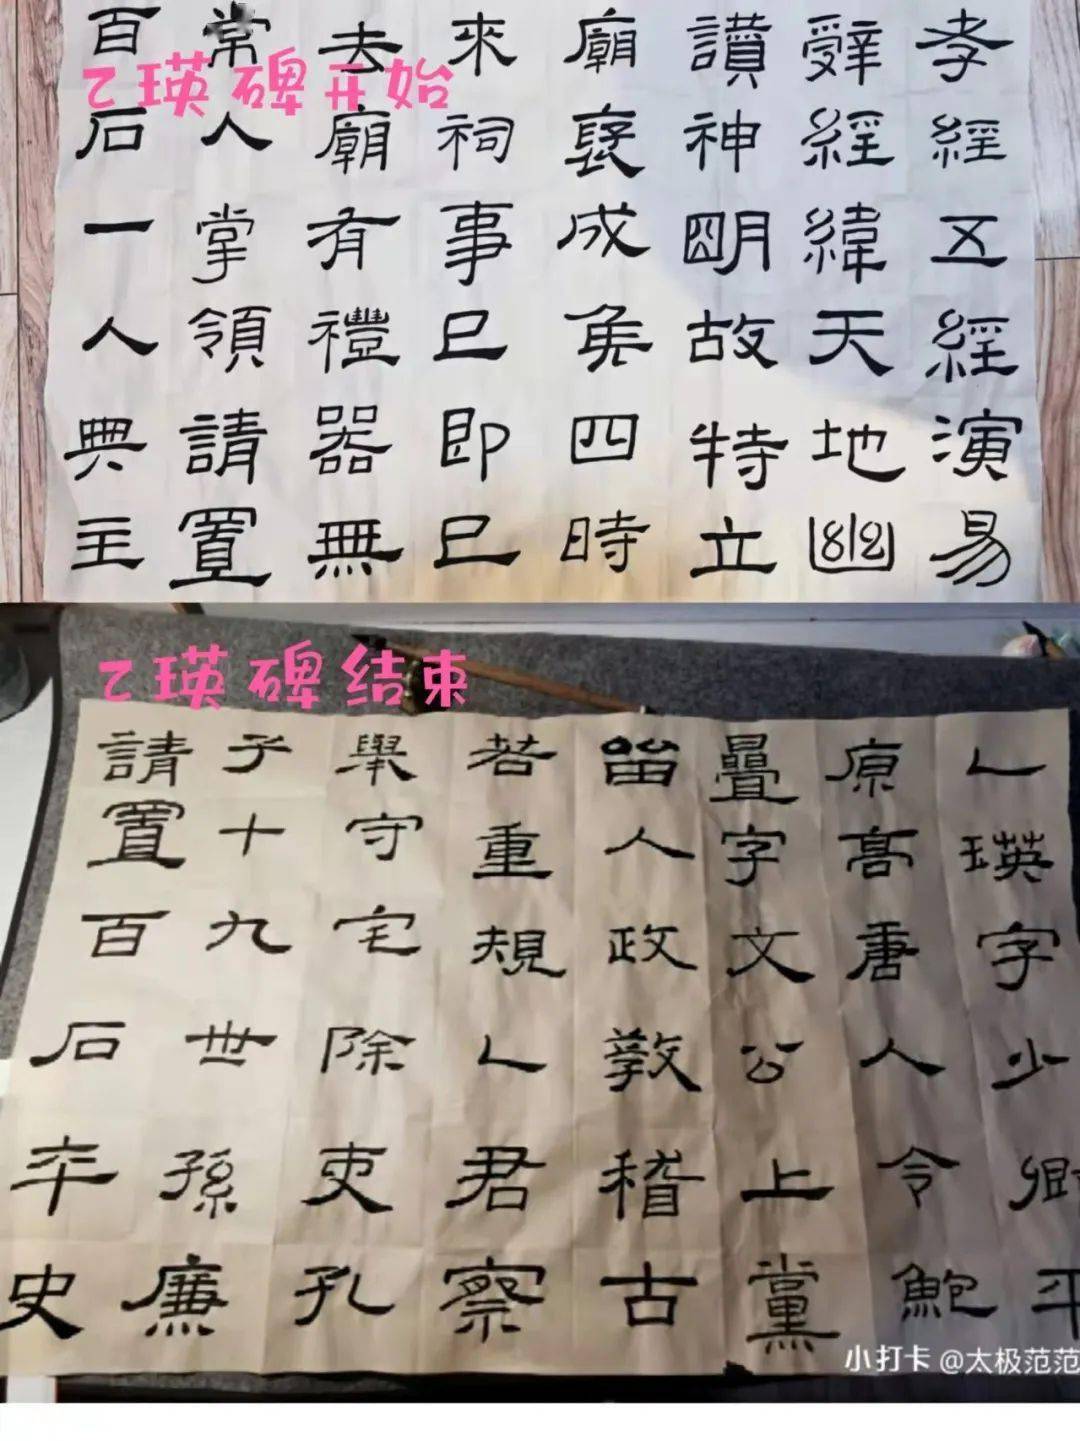 乙瑛碑开始
孝經五經演易
辤經緯天地幽
讃神明故特立
廟褒成侯四時
來祠事已即已
去廟有禮器無
常人掌領請置
百石一人典主
乙瑛碑结束
乙瑛字少卿平
原高唐人令鮑
疊字文公上黨
留人政教稽古
若重規乙君察
舉守宅除吏孔
子十九世孫廉
請置百石卒史
小打卡 @太极范范